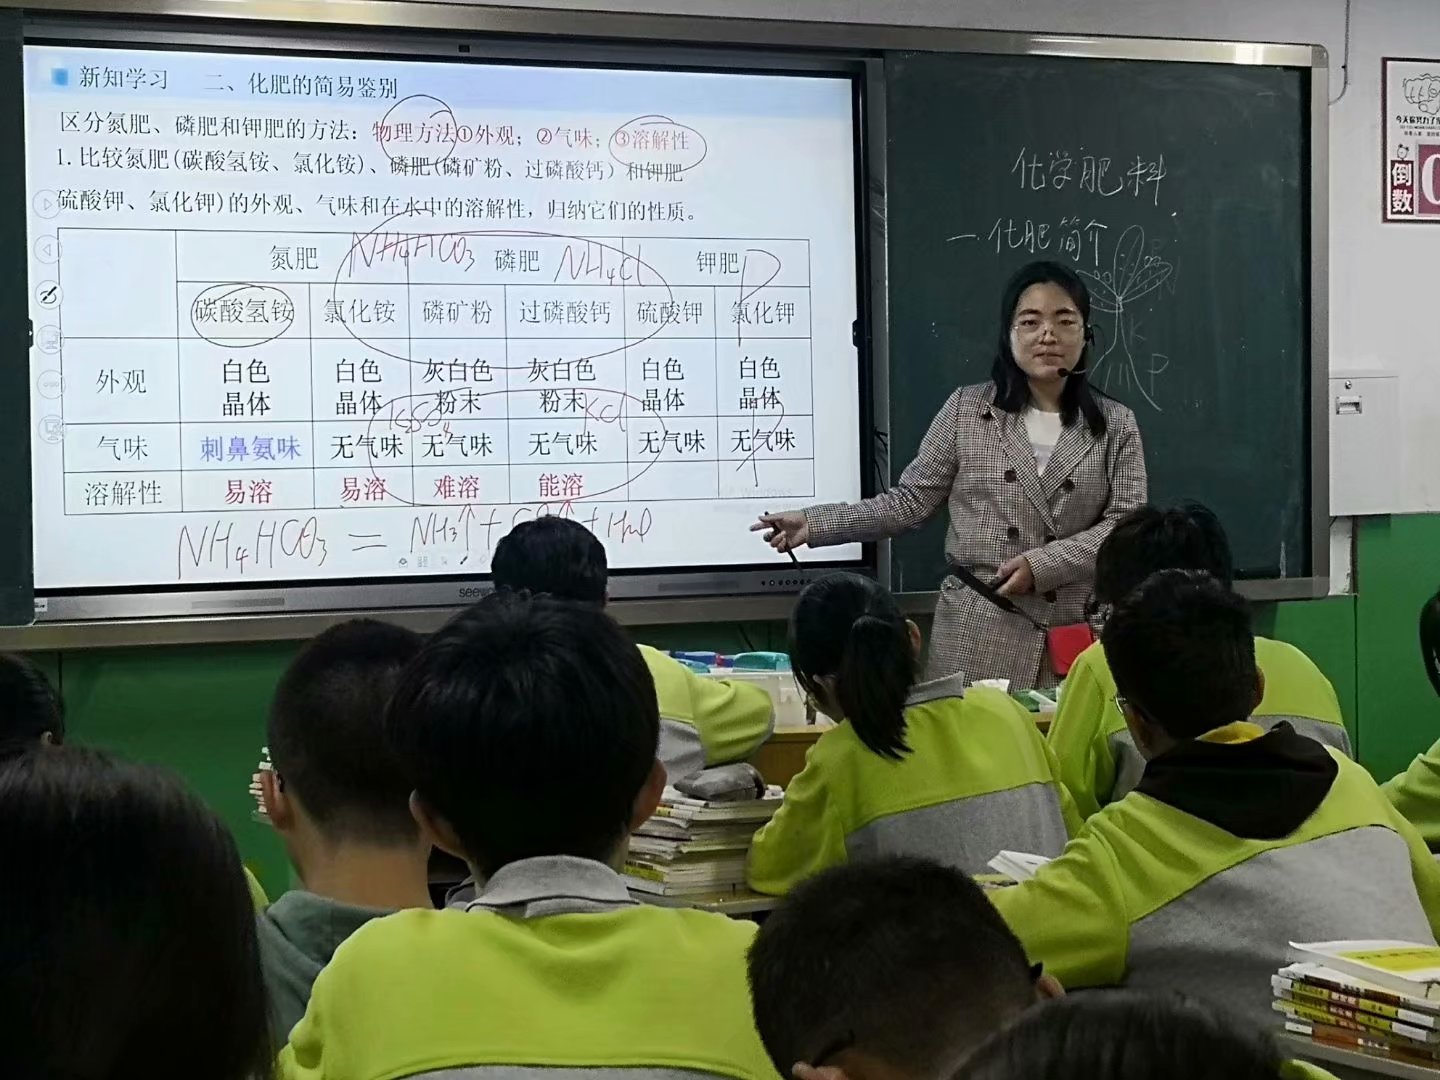 新知学习 二、化肥的简易鉴别
区分氮肥、磷肥和钾肥的方法：物理方法①外观；②气味；③溶解性
1.比较氮肥(碳酸氢铵、氯化铵)、磷肥(磷矿粉、过磷酸钙）和钾肥
硫酸钾、氯化钾)的外观、气味和在水中的溶解性，归纳它们的性质。
氮肥 NH4HCO3 磷肥 NH4Cl 钾肥 P
碳酸氢铵 氯化铵 磷矿粉 过磷酸钙 硫酸钾 氯化钾
外观 白色晶体 白色晶体 灰白色粉末 灰白色粉末 白色晶体 白色晶体
KCl
气味 刺鼻氨味 无气味 无气味 无气味 无气味 无气味
溶解性 易溶 易溶 难溶 能溶
NH4HCO3 = NH3↑+
seewo
化学肥料
一.化肥简介
K
P
今天你努力了
倒数